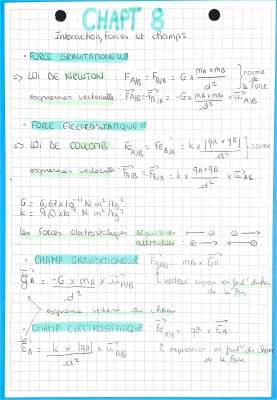 CHAPT 8
Interaction, forces et champs.
FORCE GRAVITATIONELLE
=> LOI DE NEWTON : F A/B = F B/A = G × mA × mB / d² } norme de la force.
expression vectorielle : F A/B = - F B/A = - G × mA × mB / d² × u A/B
FORCE ELECTROSTATIQUE
=> LOI DE COULOMB F A/B = F B/A = k × |qA × qB| / d² } norme
expression vectorielle F A/B = - F B/A = k × qA × qB / d² × u A/B.
G = 6,67×10⁻¹¹ N m²/kg²
k = 9,0×10⁹ N m²/kg²
les forces électrostatiques répulsives
attractives :
CHAMP GRAVITATIONEL F A/B = mB × GA
GA = - G × mA / d² × u A/B
expression du champ
CHAMP ELECTROSTATIQUE : F A/B = qB × EA
EA = k × |qA| / d² × u A/B
expression en fonct° du champ
de la force